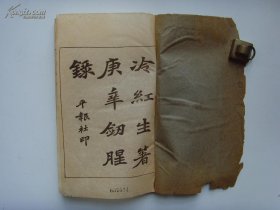 冷紅生著
庚辛劒腥
錄
平報社印